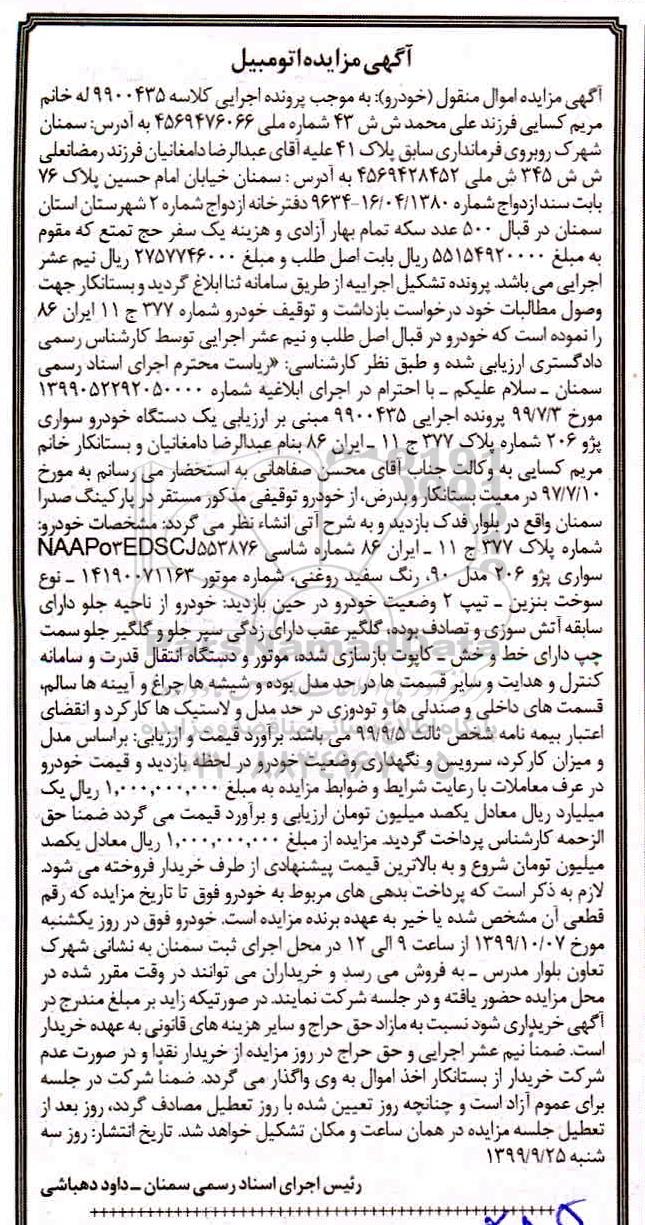 آگهی مزایده اتومبیل
آگهی مزایده اموال منقول (خودرو): به موجب پرونده اجرایی کلاسه ۹۹۰۰۴۳۵ له خانم
مریم کسایی فرزند علی محمد ش ش ۴۳ شماره ملی ۴۵۶۹۴۷۶۰۶۶ به آدرس: سمنان
شهرک روبروی فرمانداری سابق پلاک ۴۱ علیه آقای عبدالرضا دامغانیان فرزند رمضانعلی
ش ش ۳۴۵ ش ملی ۴۵۶۹۴۲۸۴۵۲ به آدرس : سمنان خیابان امام حسین پلاک ۷۶
بابت سند ازدواج شماره ۱۶/۰۴/۱۳۸۰-۹۶۳۴ دفترخانه ازدواج شماره ۲ شهرستان استان
سمنان در قبال ۵۰۰ عدد سکه تمام بهار آزادی و هزینه یک سفر حج تمتع که مقوم
به مبلغ ۵۵۱۵۴۹۲۰۰۰۰ ریال بابت اصل طلب و مبلغ ۲۷۵۷۷۴۶۰۰۰ ریال نیم عشر
اجرایی می باشد. پرونده تشکیل اجراییه از طریق سامانه ثنا ابلاغ گردید و بستانکار جهت
وصول مطالبات خود درخواست بازداشت و توقیف خودرو شماره ۳۷۷ ج ۱۱ ایران ۸۶
را نموده است که خودرو در قبال اصل طلب و نیم عشر اجرایی توسط کارشناس رسمی
دادگستری ارزیابی شده و طبق نظر کارشناسی: «ریاست محترم اجرای اسناد رسمی
سمنان ـ سلام علیکم ـ با احترام در اجرای ابلاغیه شماره ۱۳۹۹۰۵۲۲۹۲۰۵۰۰۰۰
مورخ ۹۹/۷/۳ پرونده اجرایی ۹۹۰۰۴۳۵ مبنی بر ارزیابی یک دستگاه خودرو سواری
پژو ۲۰۶ شماره پلاک ۳۷۷ ج ۱۱ ـ ایران ۸۶ بنام عبدالرضا دامغانیان و بستانکار خانم
مریم کسایی به وکالت جناب آقای محسن صفاهانی به استحضار می رسانم به مورخ
۹۷/۷/۱۰ در معیت بستانکار و بدرض، از خودرو توقیفی مذکور مستقر در پارکینگ صدرا
سمنان واقع در بلوار قدک بازدید و به شرح آتی انشاء نظر می گردد: مشخصات خودرو:
شماره پلاک ۳۷۷ ج ۱۱ ـ ایران ۸۶ شماره شاسی NAAP۰۳EDSCJ۵۵۳۸۷۶
سواری پژو ۲۰۶ مدل ۹۰، رنگ سفید روغنی، شماره موتور ۱۴۱۹۰۰۷۱۱۶۳ ـ نوع
سوخت بنزین ـ تیپ ۲ وضعیت خودرو در حین بازدید: خودرو از ناحیه جلو دارای
سابقه آتش سوزی و تصادف بوده، گلگیر عقب دارای زدگی سپر جلو و گلگیر جلو سمت
چپ دارای خط و خش ـ کاپوت بازسازی شده، موتور و دستگاه انتقال قدرت و سامانه
کنترل و هدایت و سایر قسمت ها در حد مدل بوده و شیشه ها چراغ و آیینه ها سالم،
قسمت های داخلی و صندلی ها و تودوزی در حد مدل و لاستیک ها کارکرد و انقضای
اعتبار بیمه نامه شخص ثالث ۹۹/۹/۵ می باشد. برآورد قیمت و ارزیابی: براساس مدل
و میزان کارکرد، سرویس و نگهداری وضعیت خودرو در لحظه بازدید و قیمت خودرو
در عرف معاملات با رعایت شرایط و ضوابط مزایده به مبلغ ۱,۰۰۰,۰۰۰,۰۰۰ ریال یک
میلیارد ریال معادل یکصد میلیون تومان ارزیابی و برآورد قیمت می گردد ضمناً حق
الزحمه کارشناس پرداخت گردید. مزایده از مبلغ ۱,۰۰۰,۰۰۰,۰۰۰ ریال معادل یکصد
میلیون تومان شروع و به بالاترین قیمت پیشنهادی از طرف خریدار فروخته می شود.
لازم به ذکر است که پرداخت بدهی های مربوط به خودرو فوق تا تاریخ مزایده که رقم
قطعی آن مشخص شده یا خیر به عهده برنده مزایده است. خودرو فوق در روز یکشنبه
مورخ ۱۳۹۹/۱۰/۰۷ از ساعت ۹ الی ۱۲ در محل اجرای ثبت سمنان به نشانی شهرک
تعاون بلوار مدرس ـ به فروش می رسد و خریداران می توانند در وقت مقرر شده در
محل مزایده حضور یافته و در جلسه شرکت نمایند. در صورتیکه زاید بر مبلغ مندرج در
آگهی خریداری شود نسبت به مازاد حق حراج و سایر هزینه های قانونی به عهده خریدار
است. ضمناً نیم عشر اجرایی و حق حراج در روز مزایده از خریدار نقداً و در صورت عدم
شرکت خریدار از بستانکار اخذ اموال به وی واگذار می گردد. ضمناً شرکت در جلسه
برای عموم آزاد است و چنانچه روز تعیین شده با روز تعطیل مصادف گردد، روز بعد از
تعطیل جلسه مزایده در همان ساعت و مکان تشکیل خواهد شد. تاریخ انتشار: روز سه
شنبه ۱۳۹۹/۹/۲۵
رئیس اجرای اسناد رسمی سمنان ـ داود دهباشی